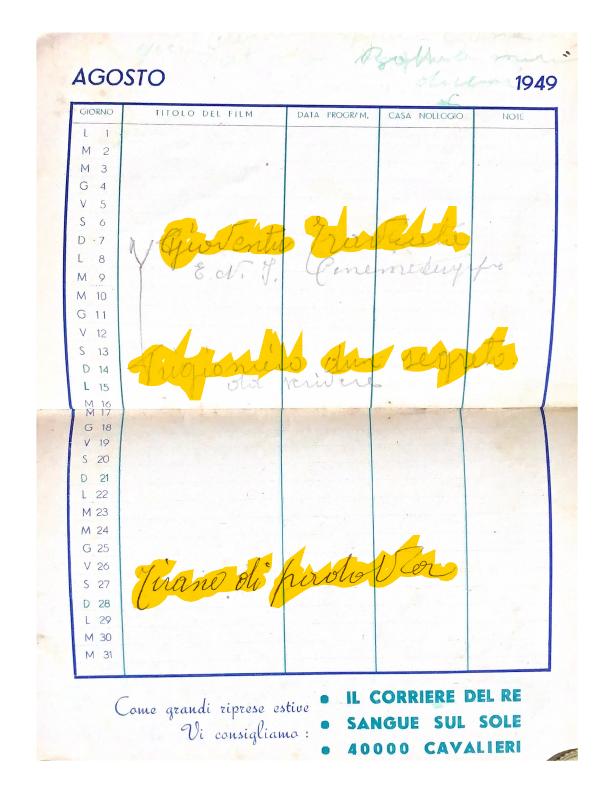 AGOSTO 1949
GIORNO TITOLO DEL FILM DATA PROGR/M. CASA NOLLGGIO NOTE
L 1
M 2
M 3
G 4
V 5
S 6
D 7 Gioventù Traviata
L 8 E. N. I.
M 9
M 10
G 11
V 12
S 13
D 14 Prigioniero dun segreto
L 15 da scrivere
M 16
M 17
G 18
V 19
S 20
D 21
L 22
M 23
M 24
G 25
V 26
S 27 Tirano di padova
D 28
L 29
M 30
M 31
Come grandi riprese estive
Vi consigliamo :
• IL CORRIERE DEL RE
• SANGUE SUL SOLE
• 40000 CAVALIERI